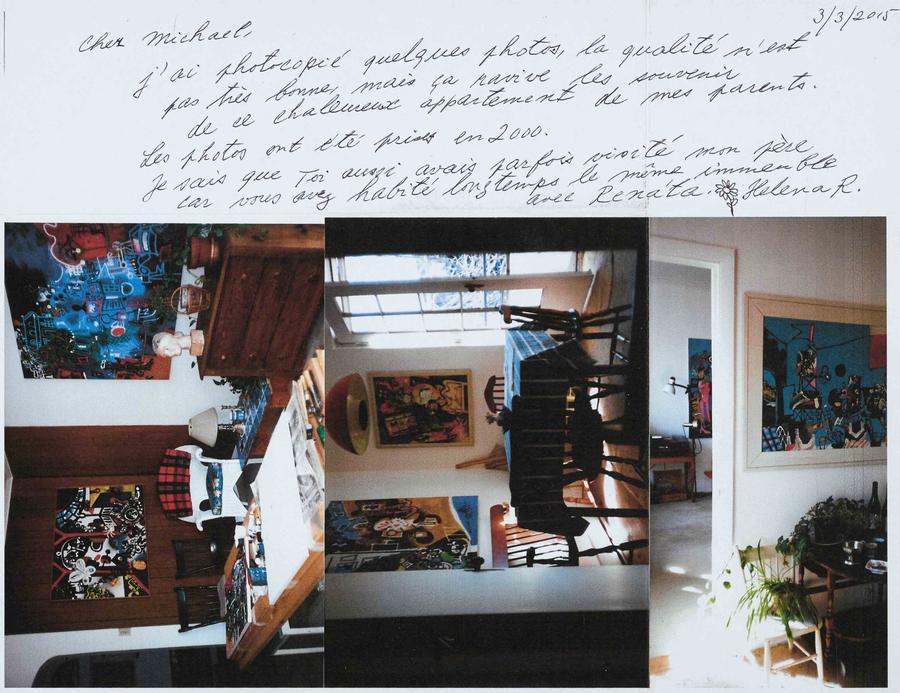 3/3/2015
Cher Michael,
j'ai photocopié quelques photos, la qualité n'est
pas très bonne, mais ça ravive les souvenir
de ce chaleureux appartement de mes parents.
Les photos ont été prises en 2000.
Je sais que Toi aussi avais parfois visité mon père
car vous avez habité longtemps le même immeuble
avec Renata. Helena R.